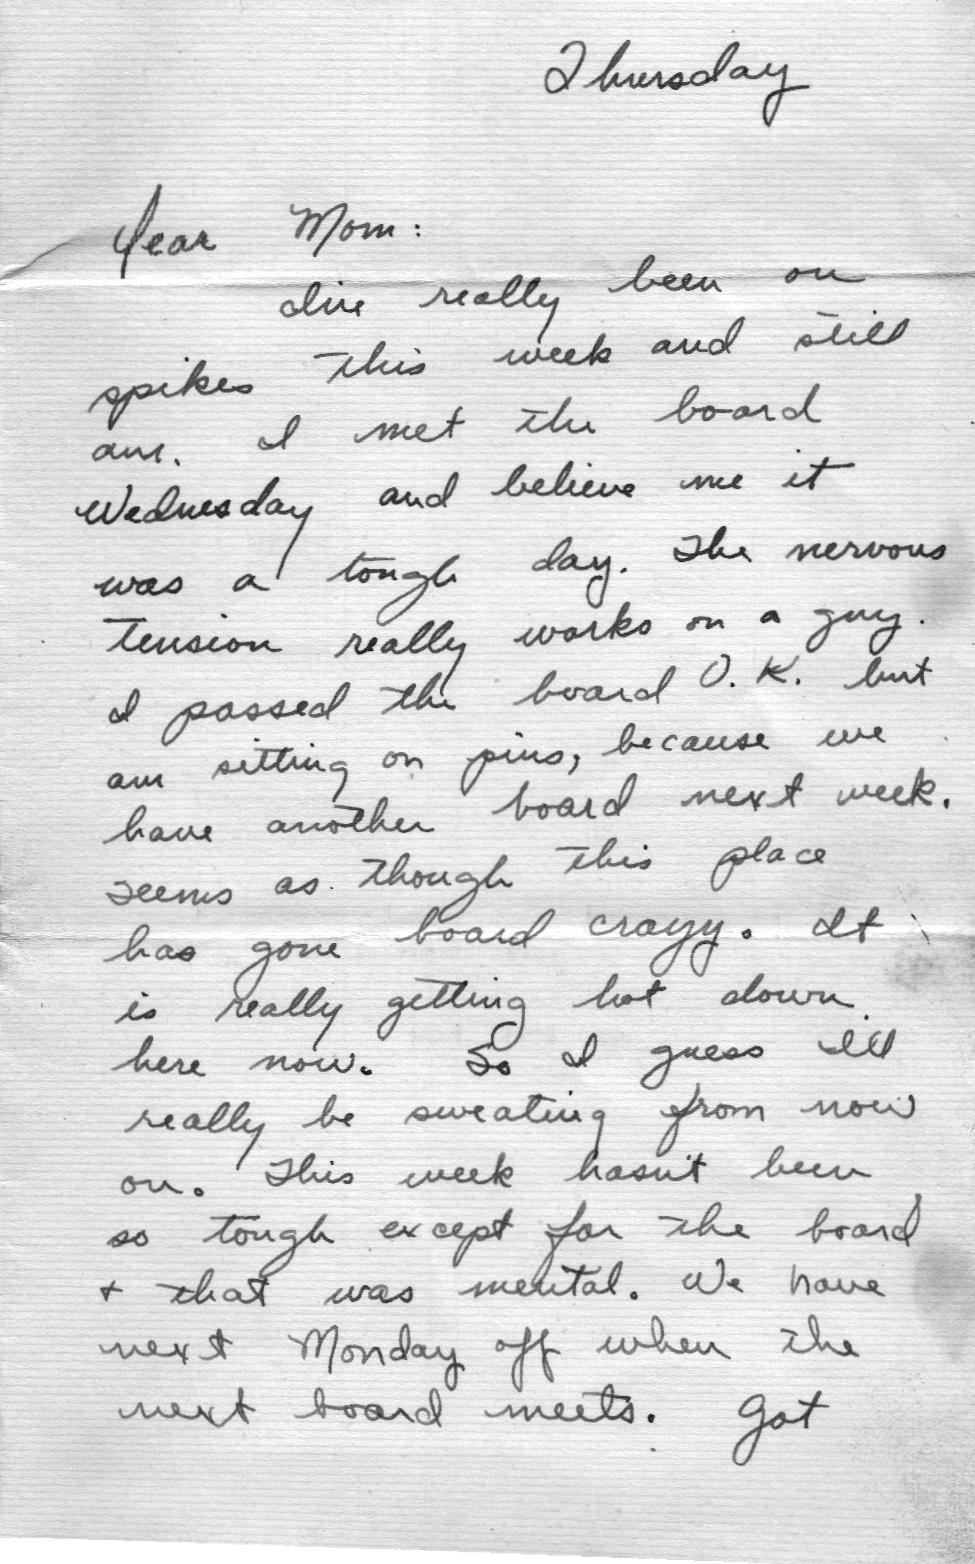 Thursday
Dear Mom:
I've really been on
spikes this week and still
am. I met the board
Wednesday and believe me it
was a tough day. The nervous
tension really works on a guy.
I passed the board O.K. but
am sitting on pins, because we
have another board next week.
Seems as though this place
has gone board crazy. It
is really getting hot down
here now. So I guess I'll
really be sweating from now
on. This week hasn't been
so tough except for the board
+ that was mental. We have
next Monday off when the
next board meets. Got